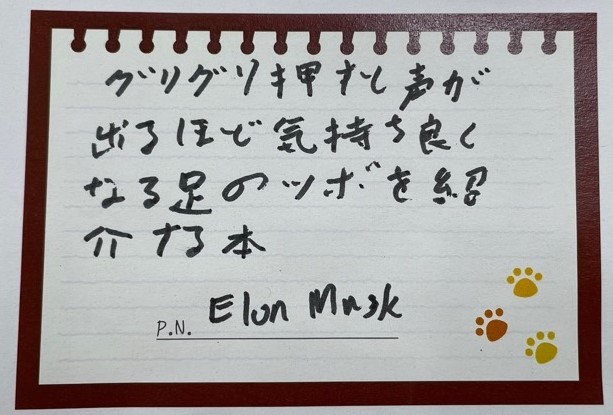 グリグリ押すと声が
出るほど気持ち良く
なる足のツボを紹
介する本
P.N. Elon Musk